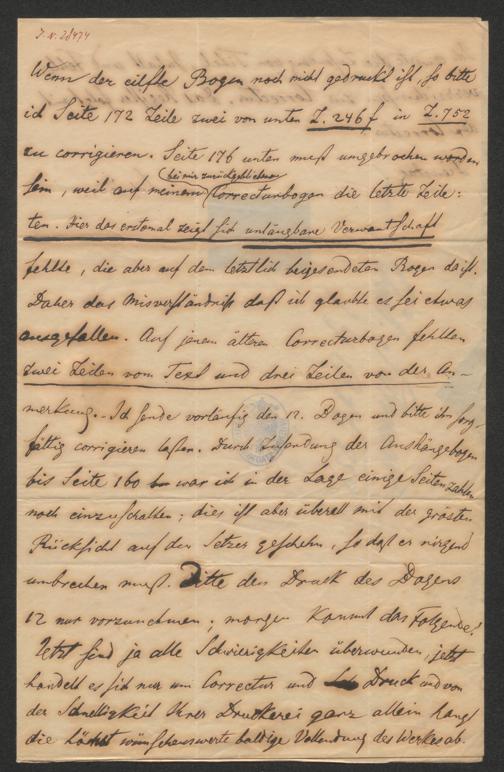 J. N. 28474
Wenn der eilfte Bogen noch nicht gedruckt ist, so bitte
ich Seite 172 Zeile zwei von unten Z. 246 f in Z. 752
zu corrigieren. Seite 176 unten muß umgebrochen worden
bei mir zurückgebliebenen
sein, weil auf meinem Correcturbogen die letzte Zeile:
ten. Hier das erstemal zeigt sich unläugbare Verwantschaft
fehlte, die aber auf dem letztlich beigesendeten Bogen da ist.
Daher das Misverständniß daß ich glaubte es sei etwas
ausgefallen. Auf jenem ältern Correcturbogen fehlten
zwei Zeilen vom Text und drei Zeilen von der An-
merkung. - Ich sende vorläufig den 12. Bogen und bitte ihn sorg-
fältig corrigieren laßen. Durch Zusendung der Aushängebogen
bis Seite 160 war ich in der Lage einige Seitenzahlen
noch einzuschalten; dies ist aber überall mit der grösten
Rücksicht auf den Setzer geschehn, so daß er nirgend
umbrechen muß. Bitte den Druck des Bogens
12 nur vorzunehmen; morgen kommt das Folgende!
Jetzt sind ja alle Schwierigkeiten überwunden, jetzt
handelt es sich nur um Correctur und Druck und von
der Schnelligkeit Ihrer Druckerei ganz allein hängt
die höchst wünschenswerte baldige Vollendung des Werkes ab.